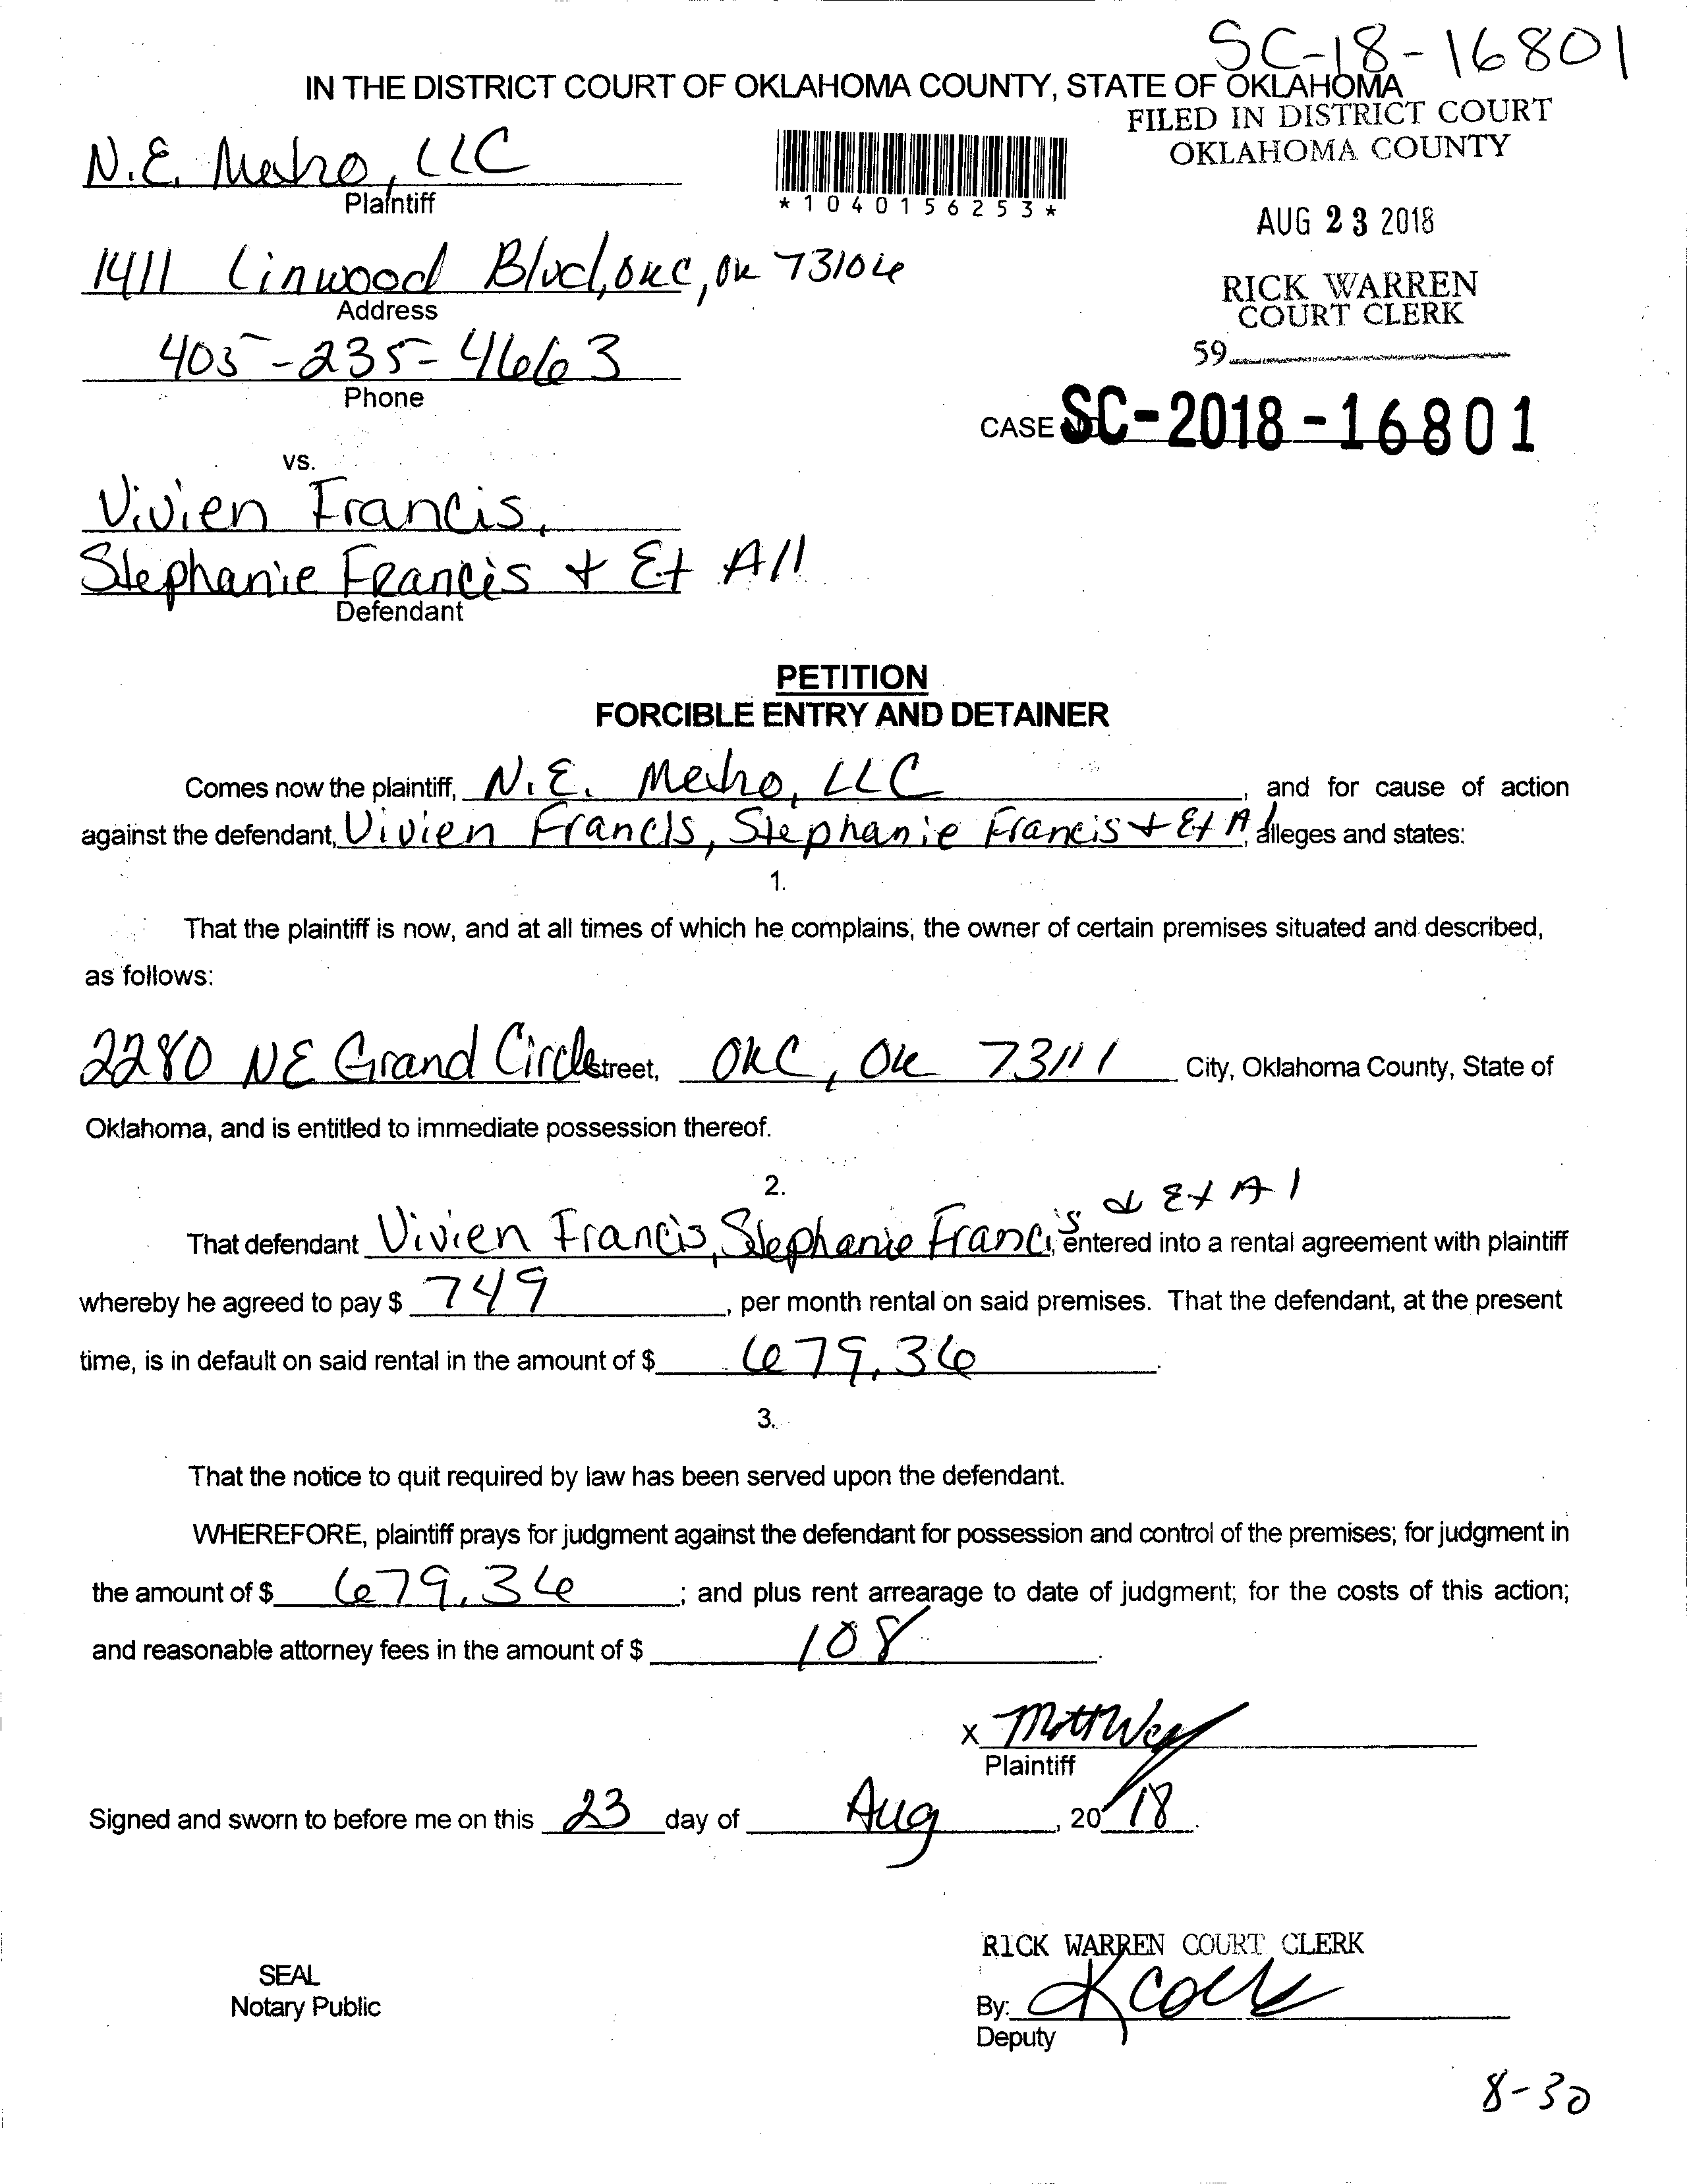 SC-18-16801
IN THE DISTRICT COURT OF OKLAHOMA COUNTY, STATE OF OKLAHOMA
FILED IN DISTRICT COURT
OKLAHOMA COUNTY
N.E. Metro, LLC
Plaintiff
*1040156253*
AUG 23 2018
1411 Linwood Blvd, OKC, OK 73106
Address
RICK WARREN
COURT CLERK
405-235-4663
Phone
59
CASE NO. SC-2018-16801
VS.
Vivien Francis,
Stephanie Francis + Et All
Defendant
PETITION
FORCIBLE ENTRY AND DETAINER
Comes now the plaintiff, N.E. Metro, LLC, and for cause of action
against the defendant, Vivien Francis, Stephanie Francis + Et Al, alleges and states:
1.
That the plaintiff is now, and at all times of which he complains, the owner of certain premises situated and described,
as follows:
2280 NE Grand Circle street, OKC, OK 73111 City, Oklahoma County, State of
Oklahoma, and is entitled to immediate possession thereof.
2.
& Et Al
That defendant Vivien Francis, Stephanie Francis, entered into a rental agreement with plaintiff
whereby he agreed to pay $ 749, per month rental on said premises. That the defendant, at the present
time, is in default on said rental in the amount of $ 679.36.
3.
That the notice to quit required by law has been served upon the defendant.
WHEREFORE, plaintiff prays for judgment against the defendant for possession and control of the premises; for judgment in
the amount of $ 679.36; and plus rent arrearage to date of judgment; for the costs of this action;
and reasonable attorney fees in the amount of $ 108.
X
Plaintiff
Signed and sworn to before me on this 23 day of Aug, 2018.
RICK WARREN COURT CLERK
SEAL
Notary Public
By:
Deputy
8-30